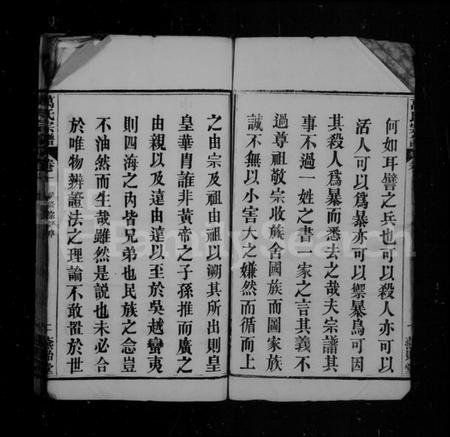 何如耳譬之兵也可以殺人亦可以
活人可以爲暴亦可以禦暴烏可因
其殺人爲暴而悉去之哉夫宗譜其
事不過一姓之書一家之言其義不
過尊祖敬宗收族舍國族而圖家族
誠不無以小害大之嫌然而循而上
之由宗及祖由祖以溯其所出則皇
皇華胄誰非黃帝之子孫推而廣之
由親以及遠由遠以至於吳越蠻夷
則四海之內皆兄弟也民族之念豈
不油然而生哉雖然是說也未必合
於唯物辨證法之理論不敢置於世
萬氏宗譜
卷一
FamilySearch